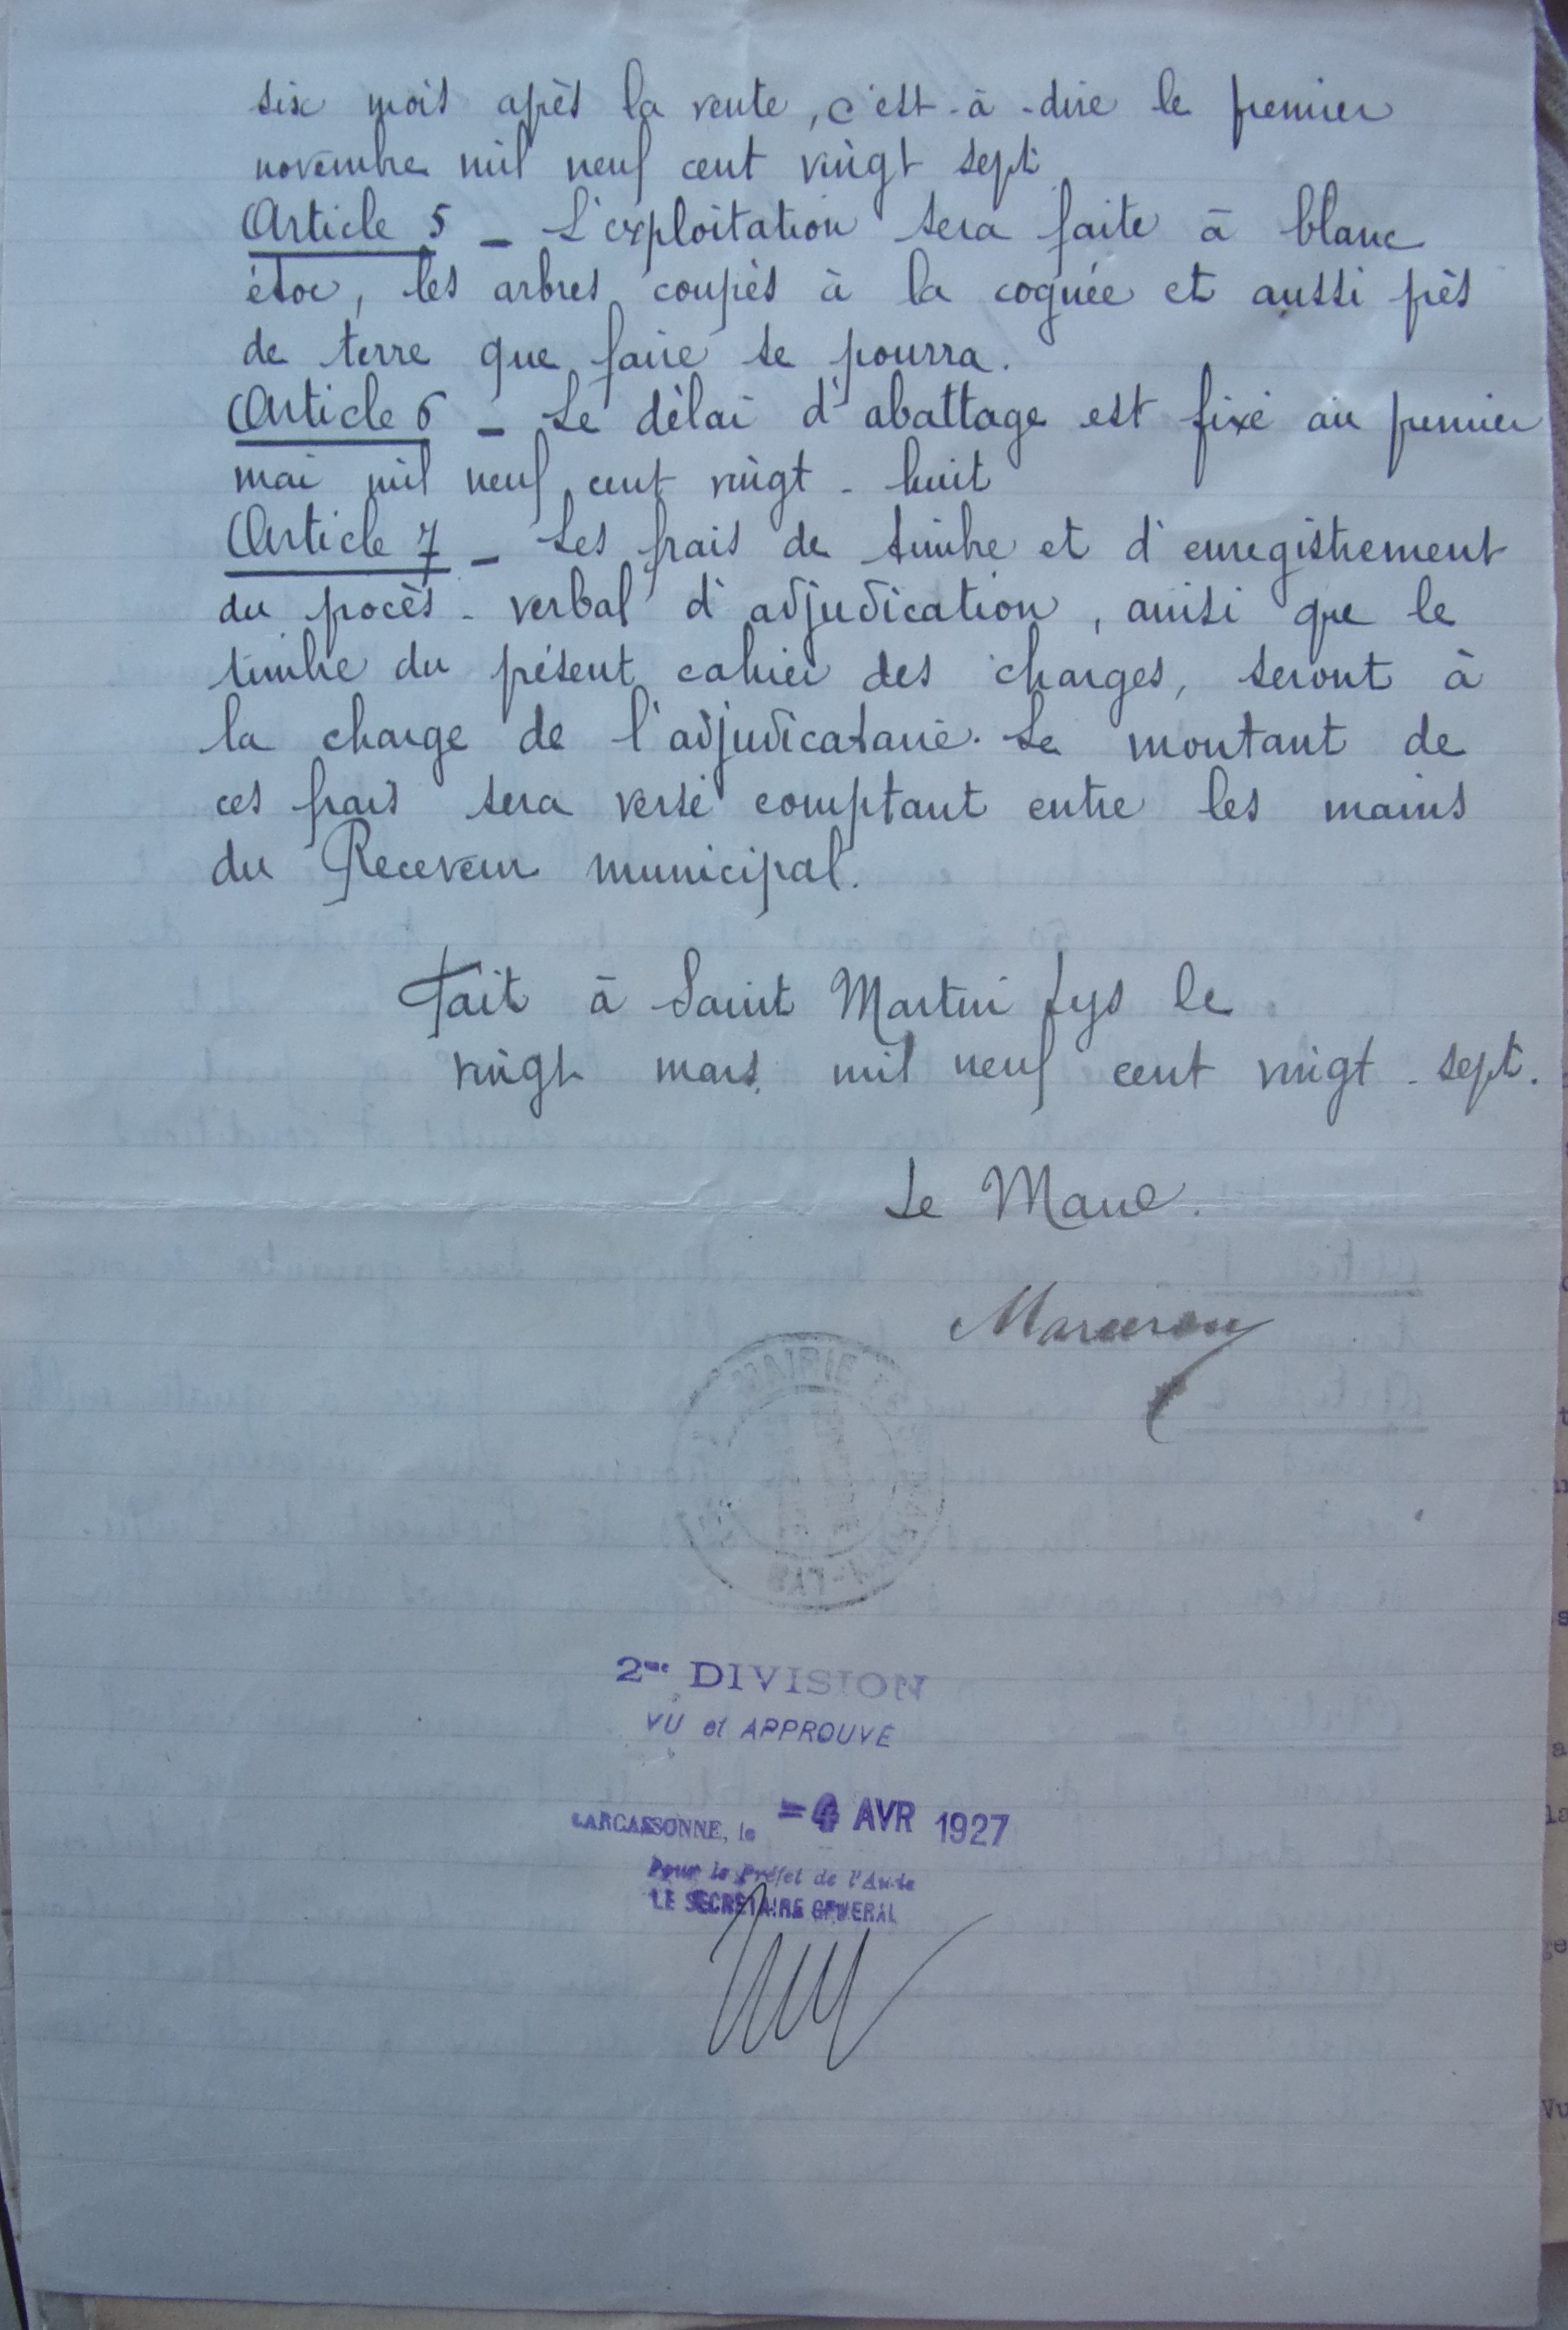 six mois après la vente, c'est-à-dire le premier
novembre mil neuf cent vingt sept
Article 5 _ L'exploitation sera faite à blanc
étoc, les arbres coupés à la cognée et aussi près
de terre que faire se pourra.
Article 6 _ Le délai d'abattage est fixé au premier
mai mil neuf cent vingt-huit
Article 7 _ Les frais de timbre et d'enregistrement
du procès-verbal d'adjudication, ainsi que le
timbre du présent cahier des charges, seront à
la charge de l'adjudicataire. Le montant de
ces frais sera versé comptant entre les mains
du Receveur municipal.
Fait à Saint Martin Lys le
vingt mars mil neuf cent vingt-sept.
Le Maire.
MAIRIE
LYS
2me DIVISION
VU et APPROUVÉ
CARCASSONNE, le =4 AVR 1927
Pour le Préfet de l'Aude
LE SECRETAIRE GENERAL